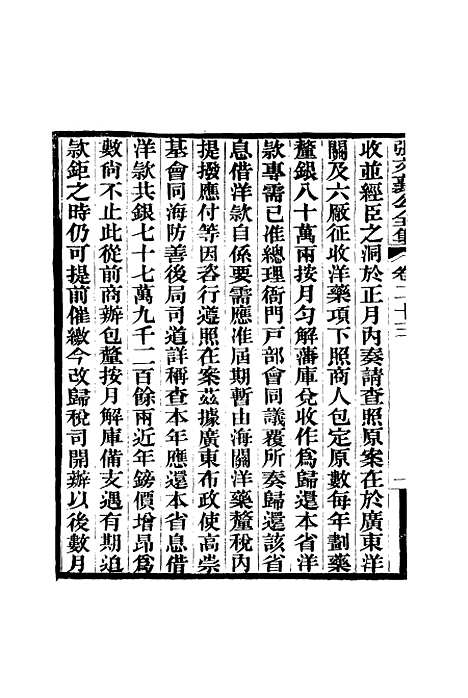 張文襄公全集 卷二十三 一
收並經臣之洞於正月內奏請查照原案在於廣東洋
關及六厰征收洋藥項下照商人包定原數每年劃藥
釐銀八十萬兩按月勻解藩庫兌收作爲歸還本省洋
款專需已准總理衙門戶部會同議覆所奏歸還該省
息借洋款自係要需應准屆期暫由海關洋藥釐稅內
提撥應付等因咨行遵照在案茲據廣東布政使高崇
基會同海防善後局司道詳稱查本年應還本省息借
洋款共銀七十七萬九千二百餘兩近年鎊價增昂爲
數尙不止此從前商辦包釐按月解庫備支遇有期迫
款鉅之時仍可提前催繳今改歸稅司開辦以後數月